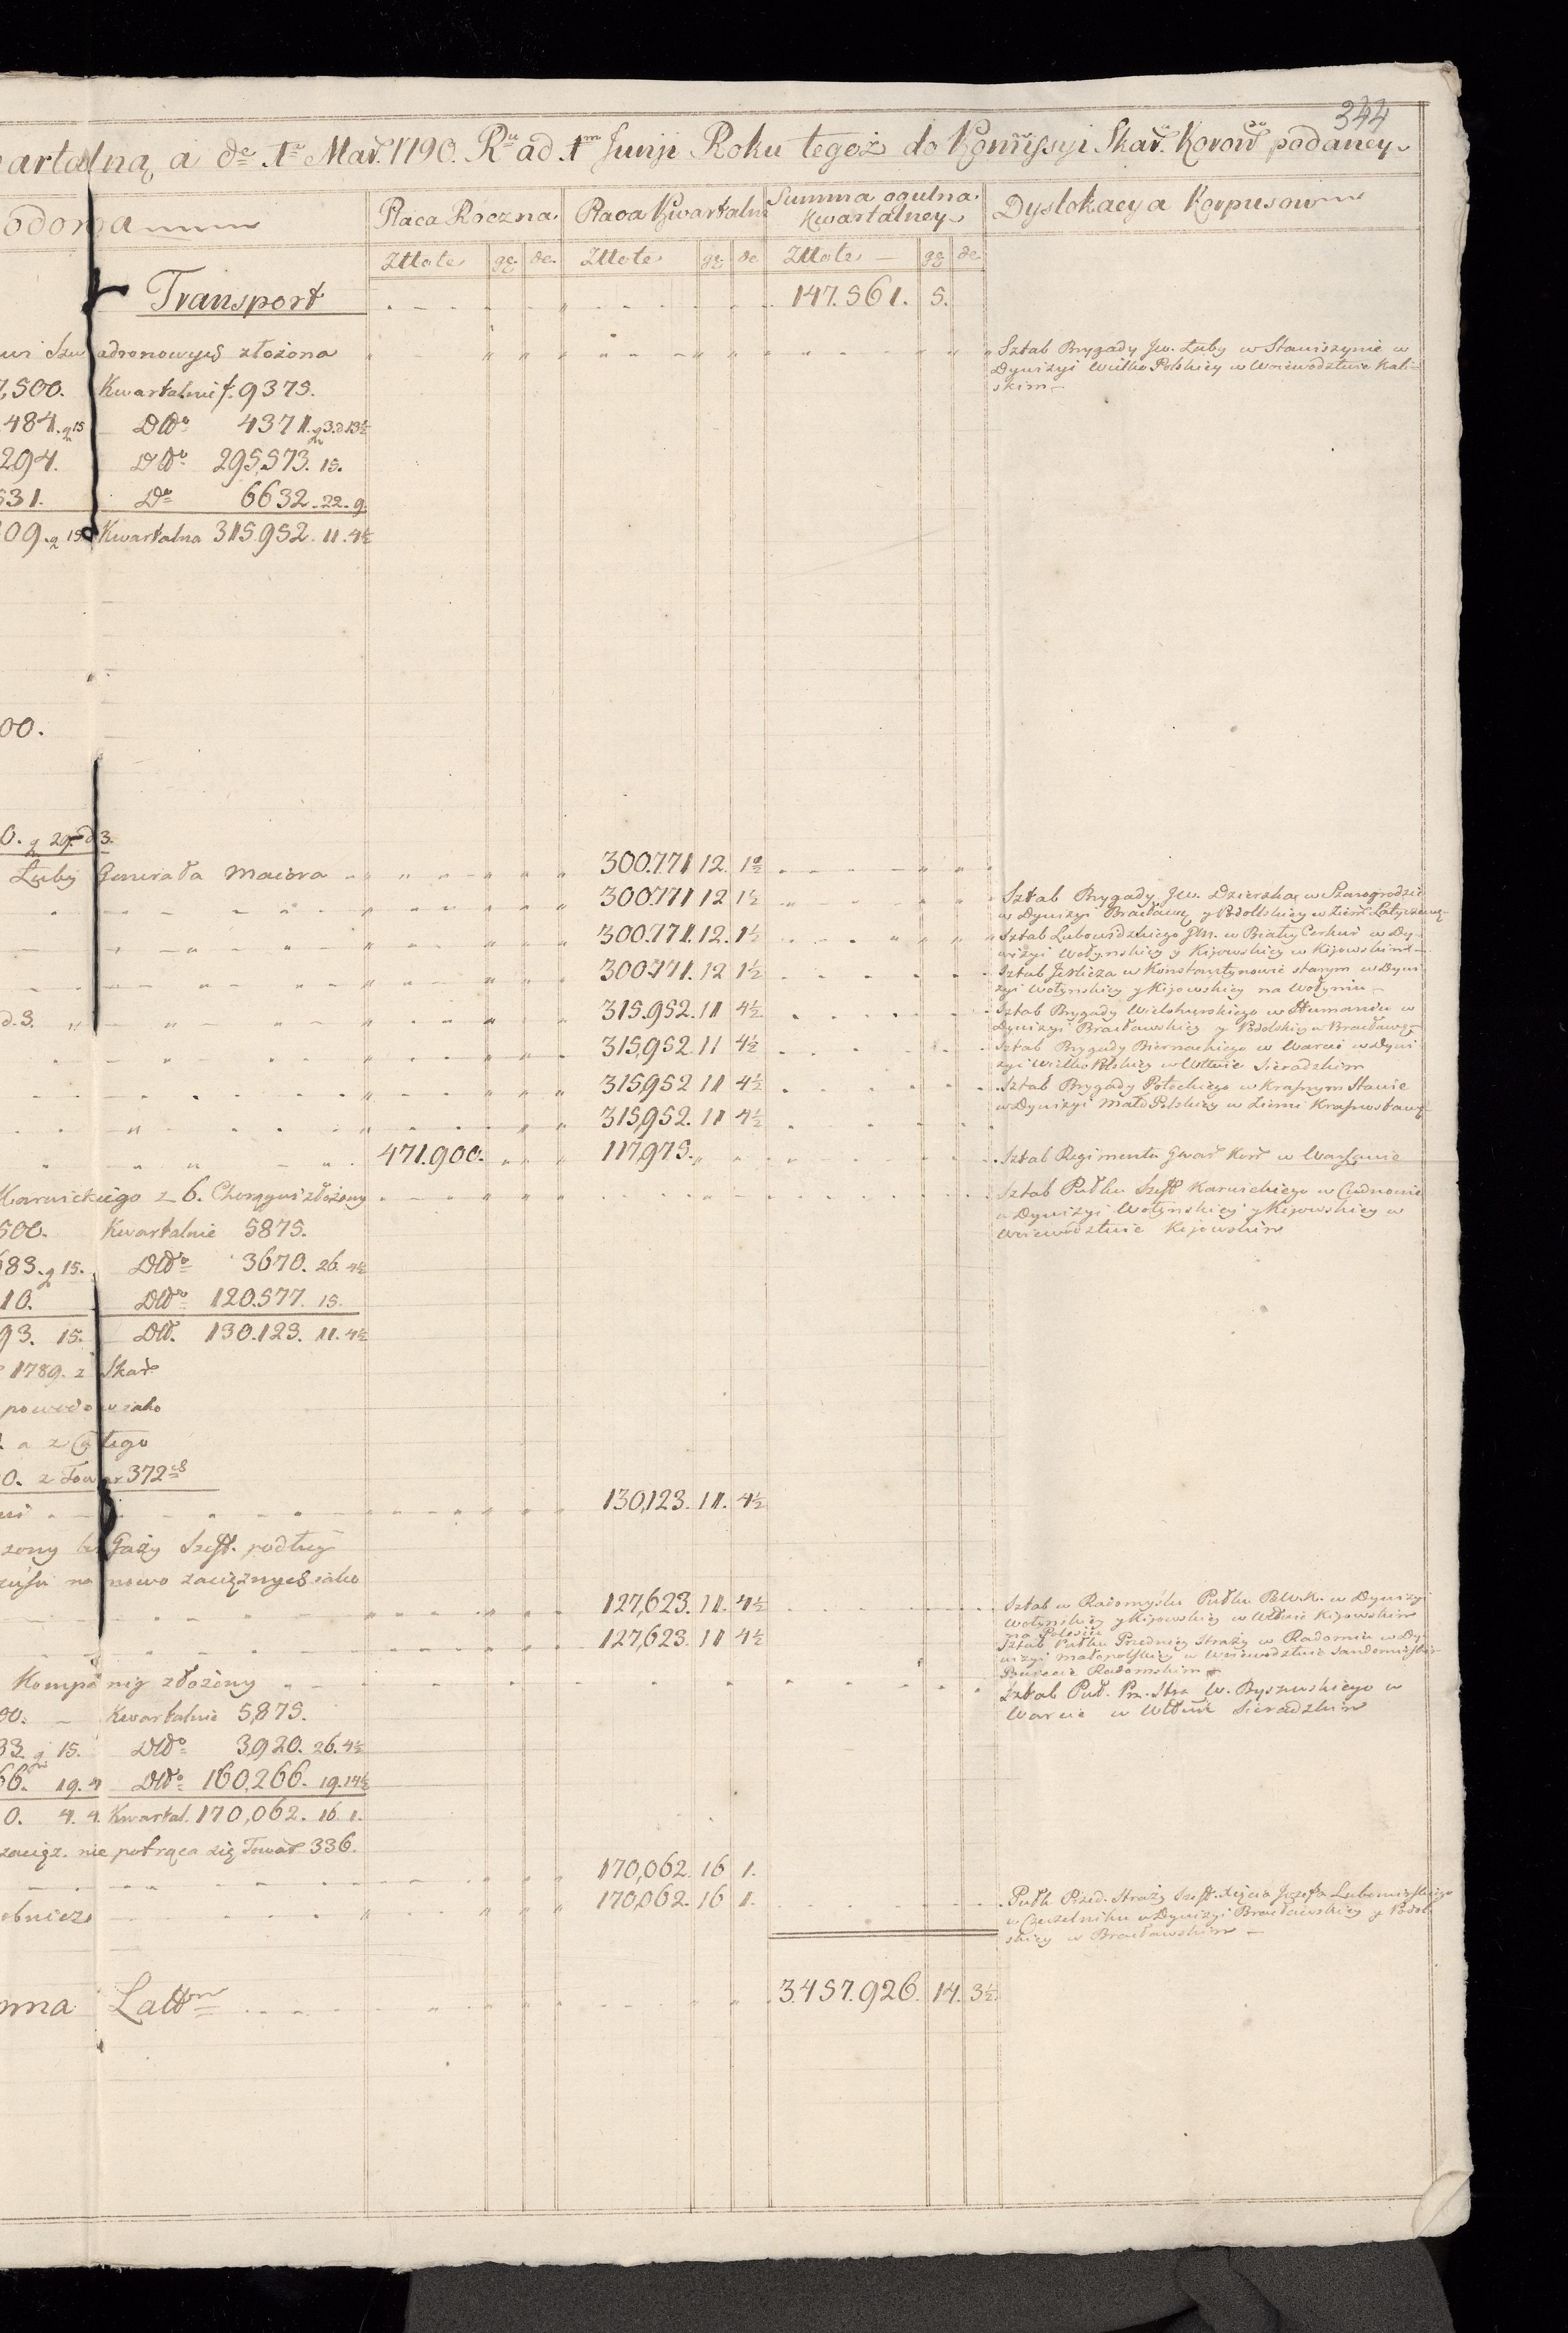 344
artalną a de 1a Mar. 1790. Ru ad 1m Junji Roku tegoż do Kommissyi Skar. Koron podaney
Płaca Roczna Płaca Kwartalna Summa ogulna Kwartalney Dyslokacya Korpusow
Złłote gr. de. Złłote gr. de Złłote gr. de.
Transport 147.561. 5.
adronowych złożona Sztab Brygady Jw. Łuby w Staniszynie w
Dywizyi Wielko Polskiey w Woiewodztwie Kali-
skim
7,500. Kwartalnie f. 9375.
484. g 15 Dtto 4371. g 3. d 13½
294. Dtto 295,573. 15.
531. Do 6632. 22. 9.
09. g 15 Kwartalna 315.952. 11. 4½
00.
0. g 29. d 3.
Łuby Generała Maiora 300.771 12. 1½
300.771 12 1½ Sztab Brygady Jw. Dzierzka w Szarogrodzie
w Dywizyi Bracławs. y Podolskiey w Ziem Latyczows.
300.771. 12. 1½ Sztab Lubowidzkiego GM. w Białey Cerkwi w Dy-
wizyi Wołynskiey y Kijowskiey w Kijowskim
300.771. 12 1½ Sztab Jerlicza w Konstantynowie starym w Dywi
zyi Wołynskiey y Kijowskiey na Wołyniu
d. 3. 315.952. 11 4½ Sztab Brygady Wielohurskiego w Humaniu w
Dywizyi Bracławskiey y Podolskiey w Bracławs.
315,952. 11 4½ Sztab Brygady Biernackiego w Warcie w Dywi
zyi Wielko Polskiey w Wttwie Sieradzkim
315,952 11 4½ Sztab Brygady Potockiego w Krasnym Stawie
w Dywizyi Mało Polskiey w Ziemi Krasnostaws.
315,952. 11 4½
471.900. 117,975. Sztab Regimentu Gwar Kor w Warszawie
Karwickiego z 6. Chorągwi złożony Sztab Pułku Szeff Karwickiego w Cudnowie
w Dywizyi Wołynskiey y Kijowskiey w
Woiewodztwie Kijowskim
500. Kwartalnie 5875.
683. g 15. Dtto 3670. 26. 4½
10. Dtto 120.577. 15.
93. 15. Dtt. 130.123. 11. 4½
1789. z Skar
powodow iako
a z tego
0. z Towar 372ch
130,123. 11. 4½
zony bez Gaży Szeff. podług
na nowo zaciężnych iako
127,623. 11. 4½ Sztab w Radomyślu Pułku P.W.K. w Dywizyi
Wołynskiey y Kijowskiey w Wttwie Kijowskim
na Polesiu
127,623. 11 4½ Sztab Pułku Przedniey Straży w Radomiu w Dy-
wizyi Małopolskiey w Woiewodztwie Sandomirskim
Powiecie Radomskim
Kompanią złożony Sztab Puł. Prz. Stra W. Byszewskiego w
Warcie w Wttwie Sieradzkim
00. Kwartalnie 5,875.
33. g 15. Dtto 3,920. 26. 4½
66. 19. 4 Dtto 160,266. 19. 14½
0. 4. 4. Kwartal. 170,062. 16. 1.
zaciąz. nie potrąca się Towar 336.
170,062. 16 1.
170,062. 16 1. Pułk Przed. Straży Szeff. Xięcia Jozefa Lubomirskiego
w Czeczelniku w Dywizyi Bracławskiey y Podol-
skiey w Bracławskim
mma Latt 3.457.926. 14. 3½